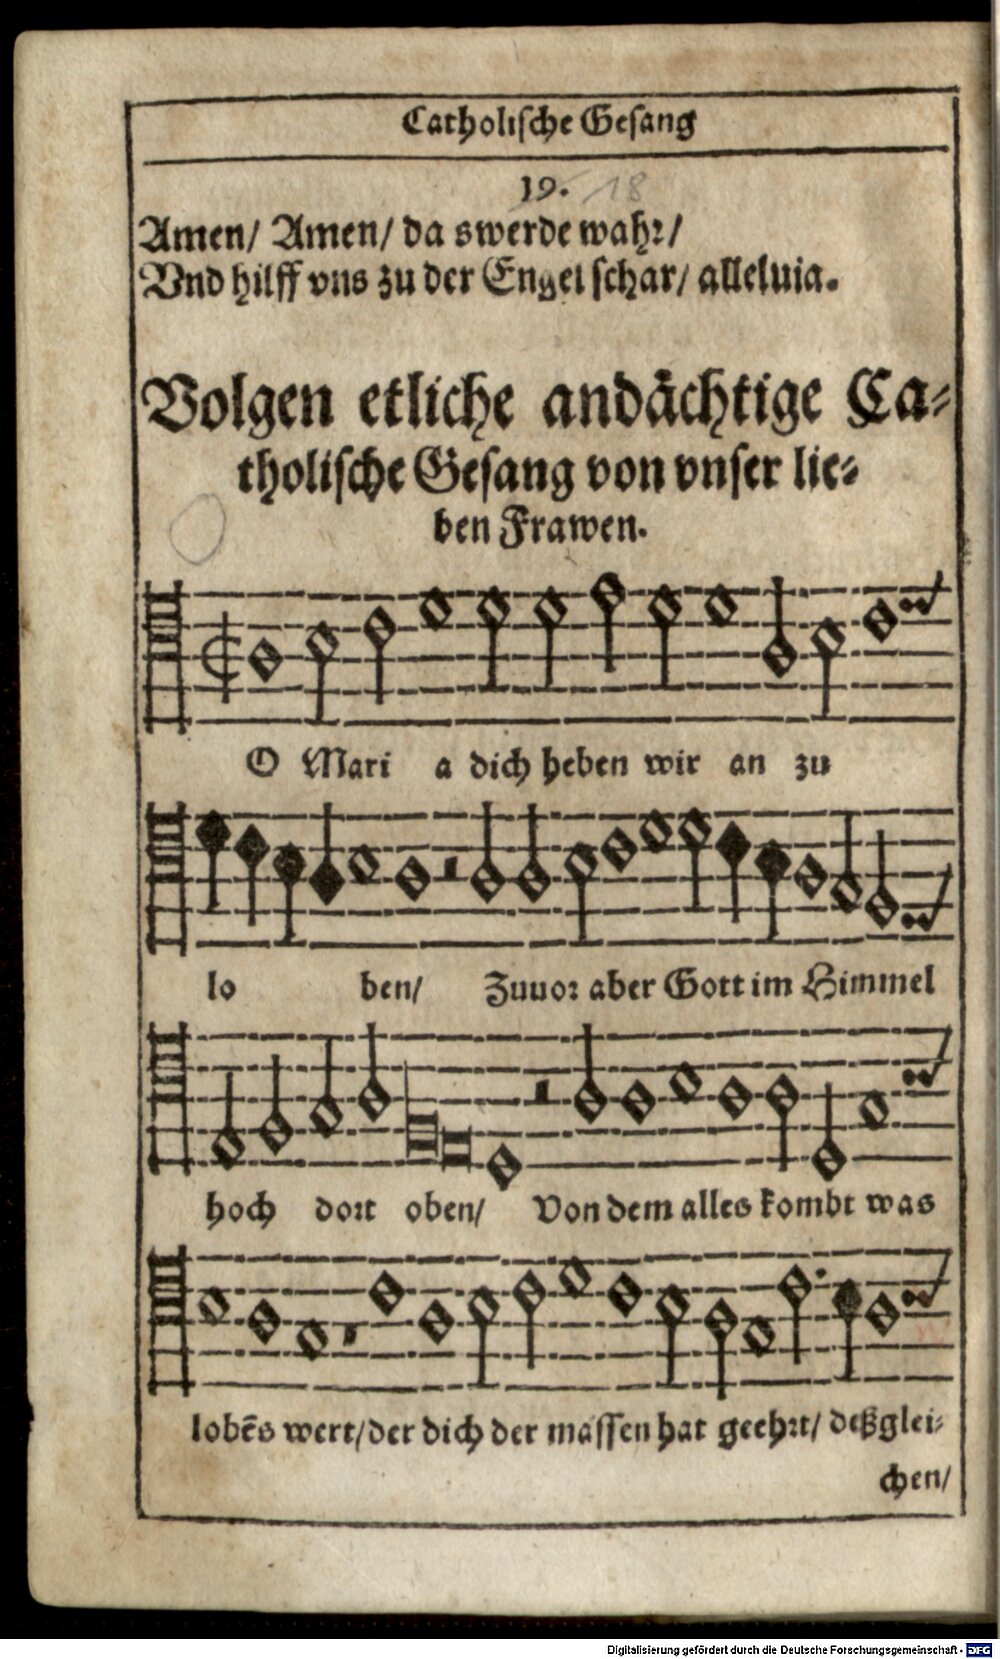 Catholische Gesang
19. 18
Amen/ Amen/ da swerde wahr/
Vnd hilff vns zu der Engel schar/ alleluia.
Volgen etliche andächtige Ca-
tholische Gesang von vnser lie-
ben Frawen.
O Mari a dich heben wir an zu
lo ben/ Zuuor aber Gott im Himmel
hoch dort oben/ Von dem alles kombt was
lobēs wert/ der dich der massen hat geehrt/ deßglei-
chen/
Digitalisierung gefördert durch die Deutsche Forschungsgemeinschaft - DFG